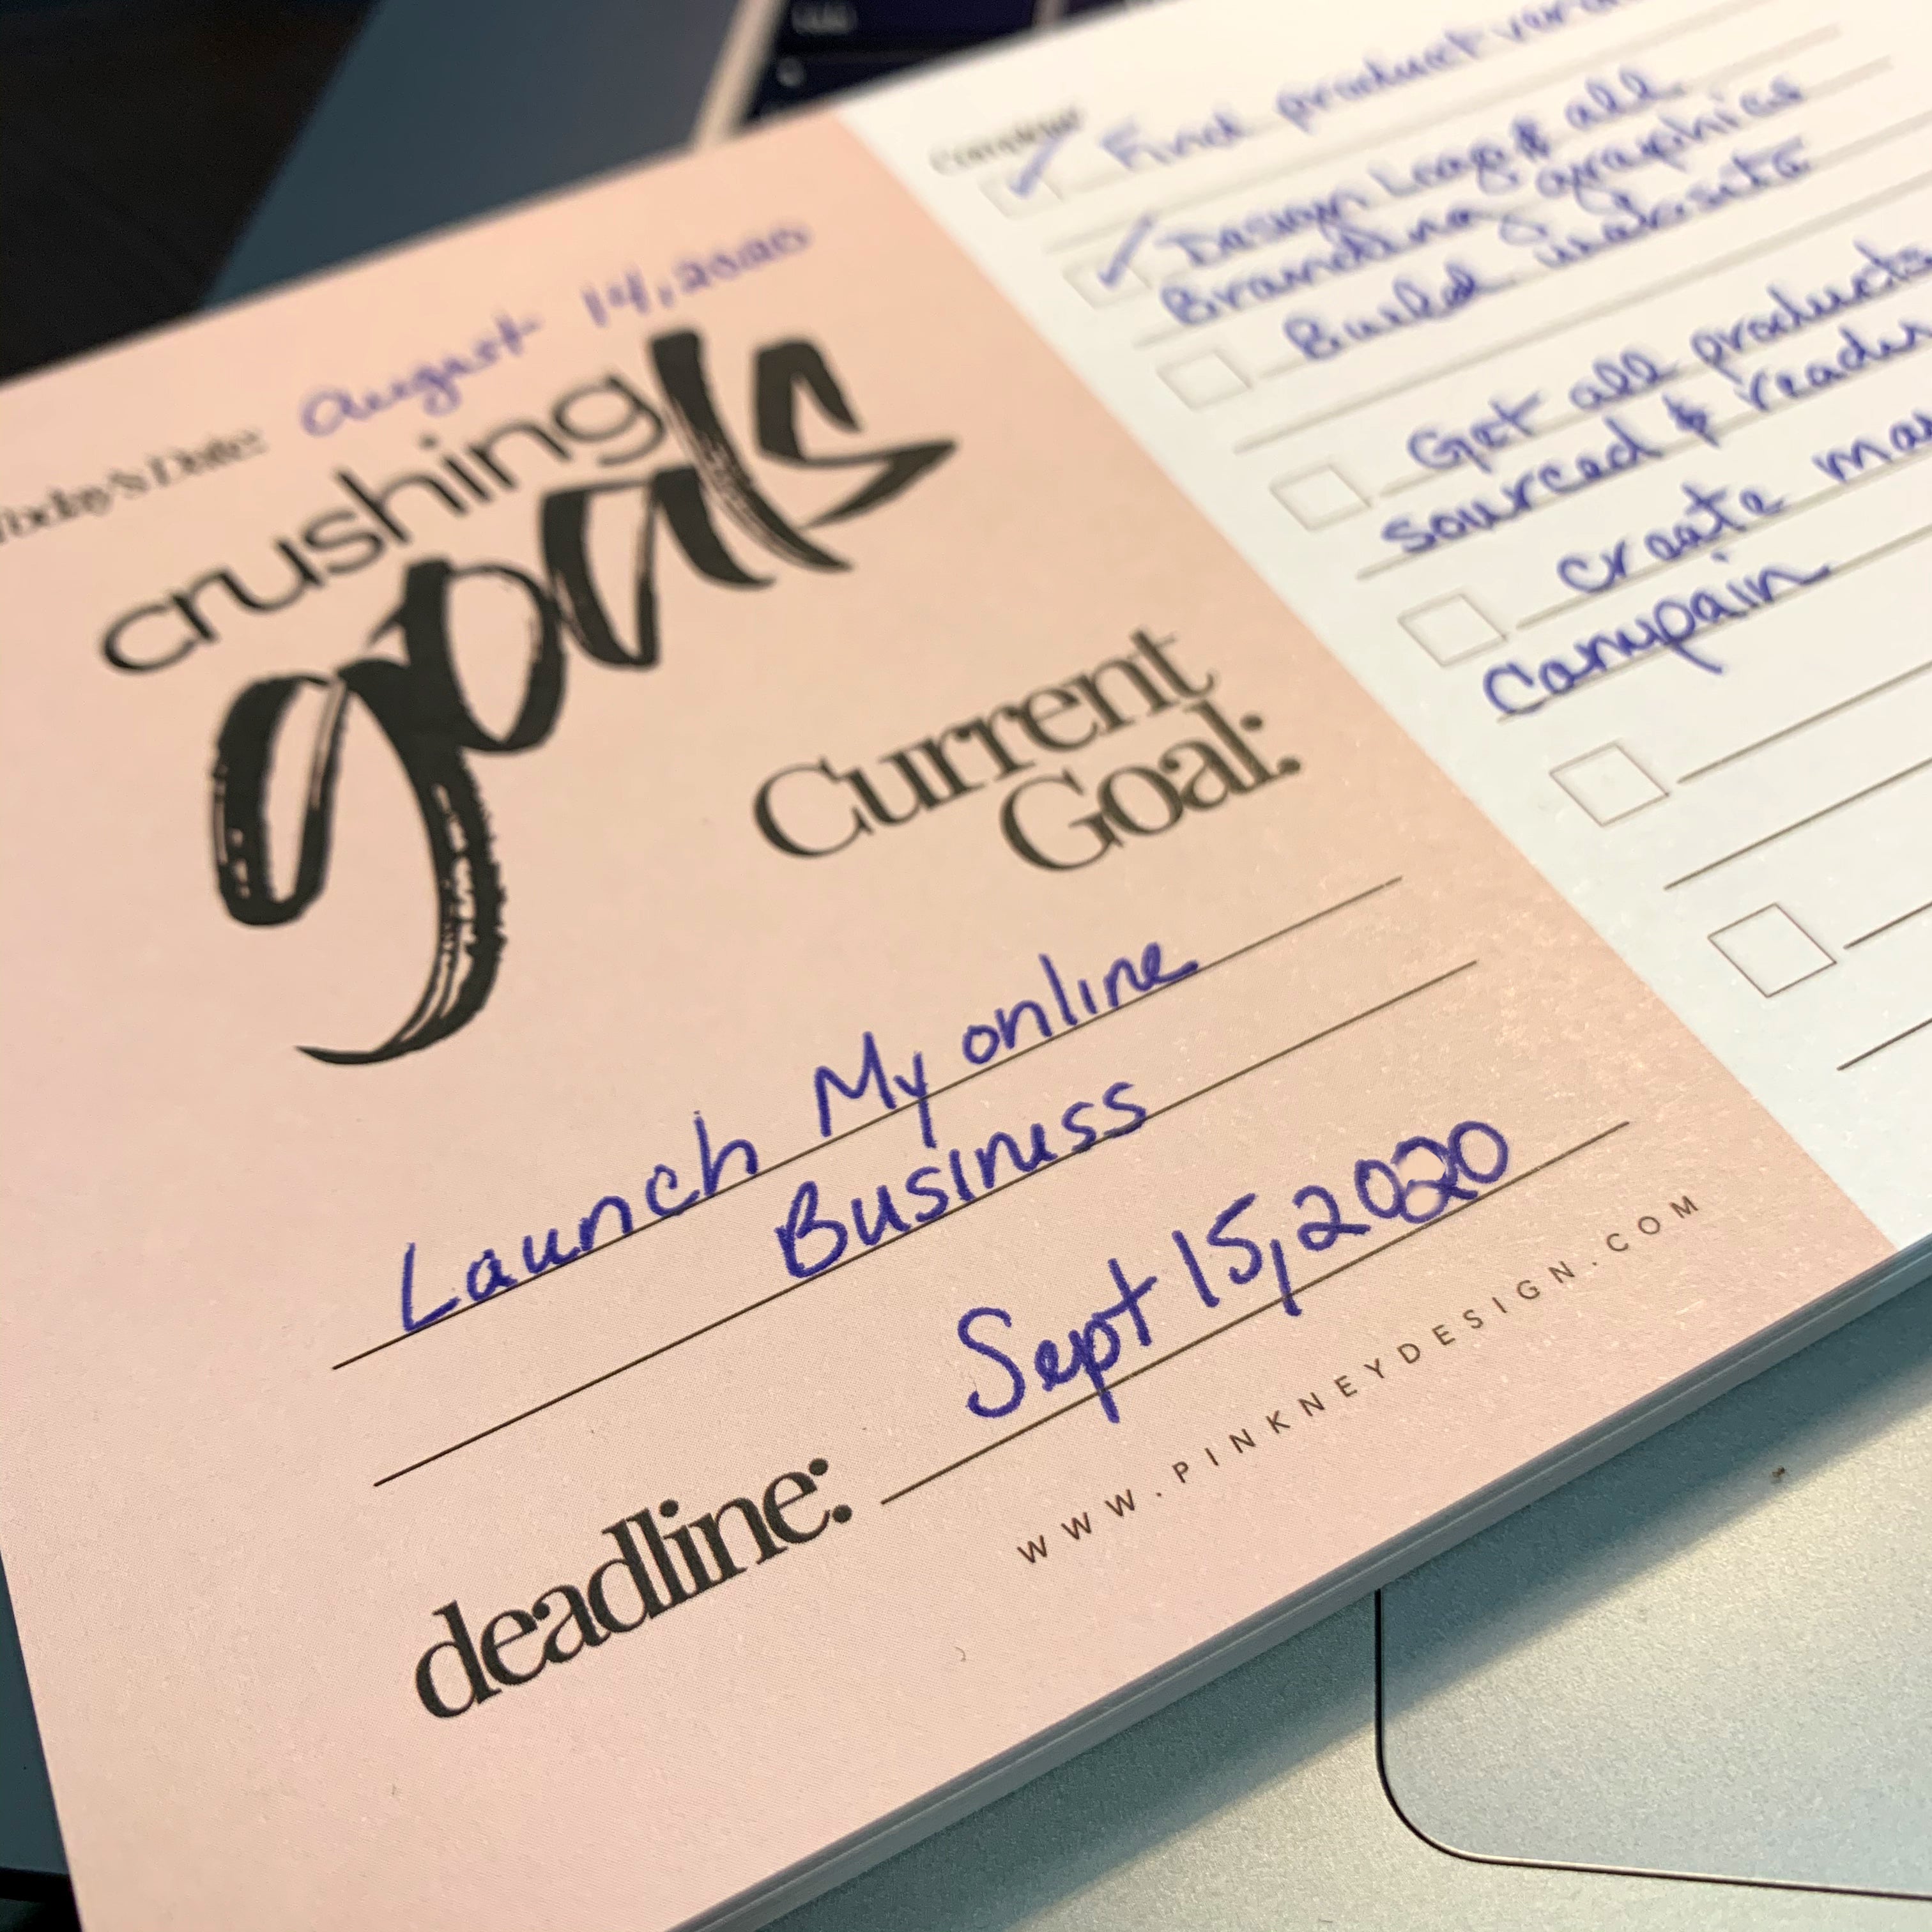 Today's Date: August 14, 2020
crushing
goals
Current
Goal:
Launch My online
Business
deadline: Sept 15, 2020
WWW.PINKNEYDESIGN.COM
Complete
Find product
Design Logo & all
Branding graphics
Build website
Get all products
sourced & ready
create
Campain